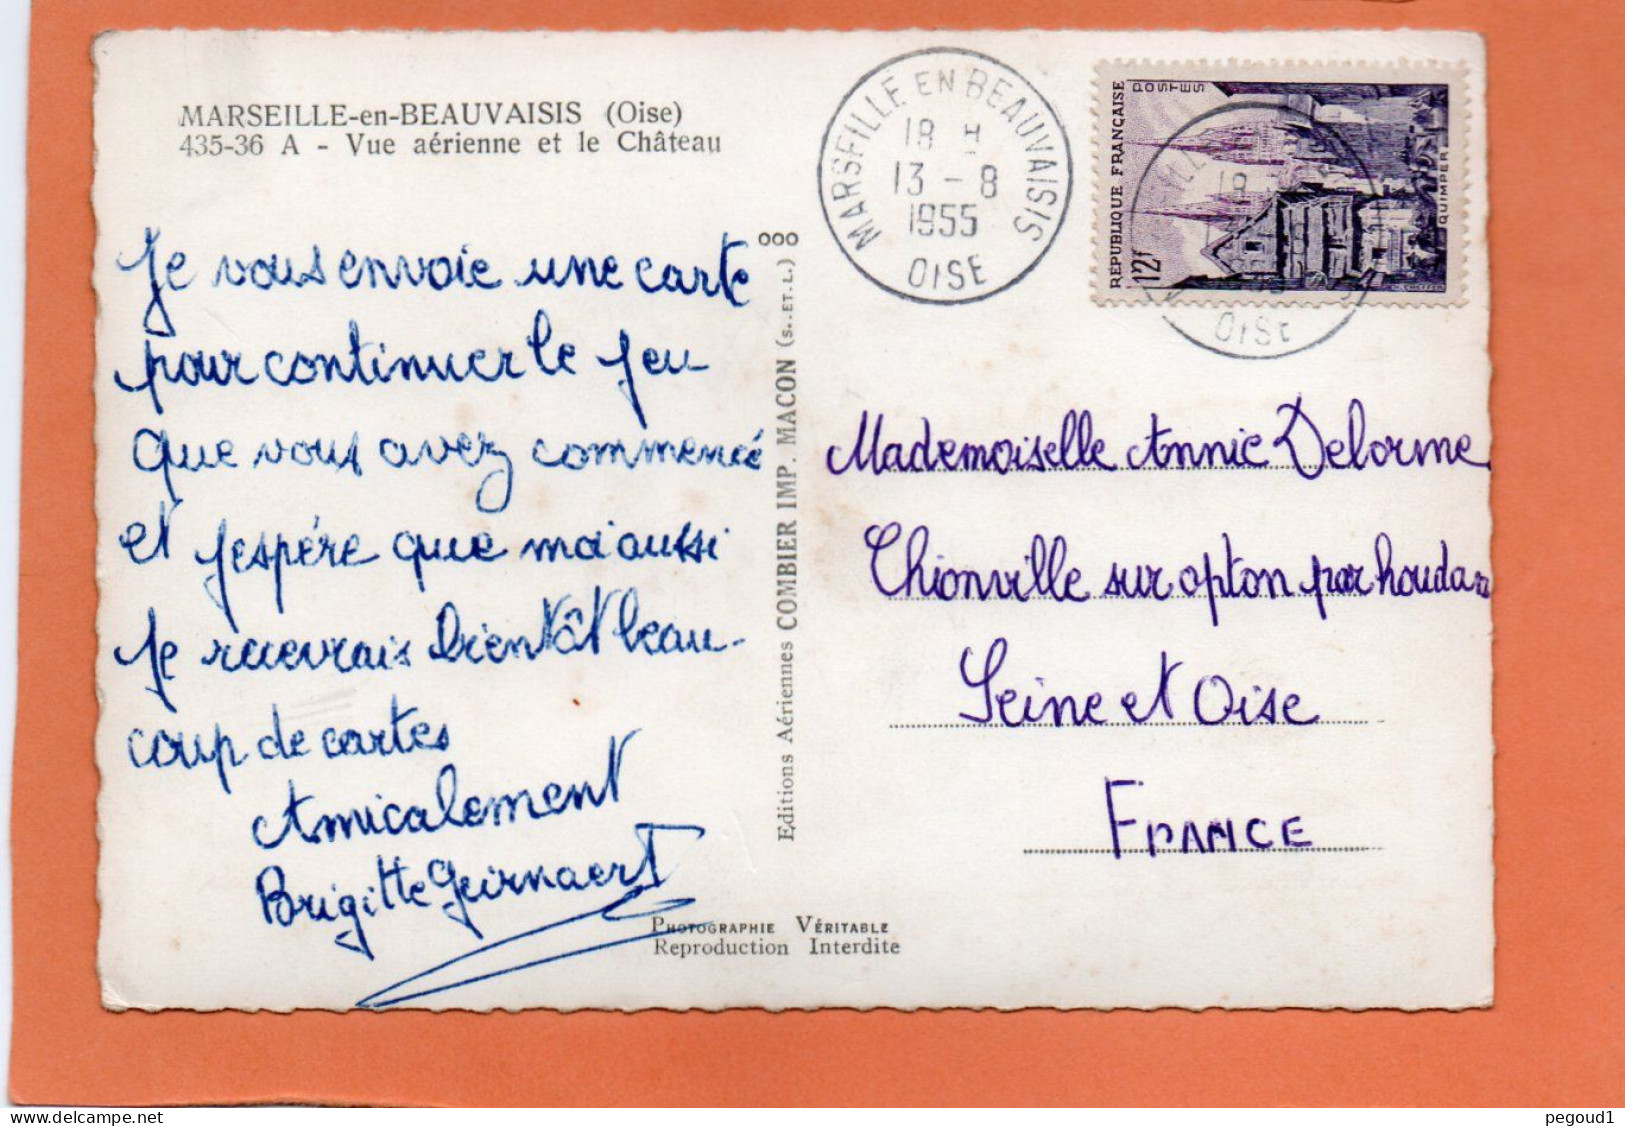 MARSEILLE-en-BEAUVAISIS (Oise)
435-36 A - Vue aérienne et le Château
Je vous envoie une carte
pour continuer le jeu
que vous avez commencé
et j'espére que moi aussi
je recevrais bientôt beau-
coup de cartes
Amicalement
Brigitte Geirnaert
ooo
Editions Aériennes COMBIER IMP. MACON (S.. ET. L.)
PHOTOGRAPHIE VÉRITABLE
Reproduction Interdite
MARSEILLE EN BEAUVAISIS
18 H
13 - 8
1955
OISE
REPUBLIQUE FRANÇAISE
POSTES
12F
QUIMPER
18
OISE
Mademoiselle Annie Delorme
Thionville sur opton par houdan
Seine et Oise
FRANCE
www.delcampe.net
pegoud1